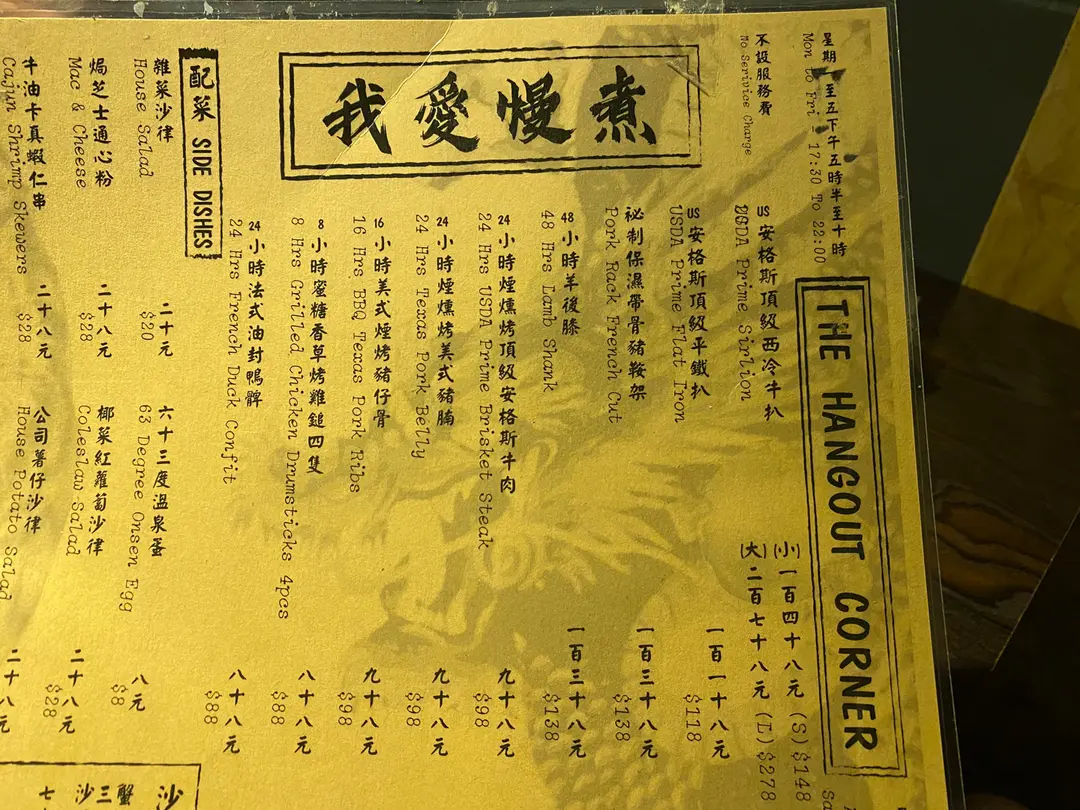 THE HANGOUT CORNER
星期一至五下午五時半至十時
Mon to Fri 17:30 To 22:00
不設服務費
No Serivice Charge
我愛慢煮
US安格斯頂級西冷牛扒 (小)一百四十八元 (S)$148
USDA Prime Sirlion (大)二百七十八元 (L)$278
US安格斯頂級平鐵扒 一百一十八元
USDA Prime Flat Iron $118
祕制保濕帶骨豬鞍架 一百三十八元
Pork Rack French Cut $138
48小時羊後膝 一百三十八元
48 Hrs Lamb Shank $138
24小時煙燻烤頂級安格斯牛肉 九十八元
24 Hrs USDA Prime Brisket Steak $98
24小時煙燻烤美式豬腩 九十八元
24 Hrs Texas Pork Belly $98
16小時美式煙烤豬仔骨 九十八元
16 Hrs BBQ Texas Pork Ribs $98
8小時蜜糖香草烤雞鎚四隻 八十八元
8 Hrs Grilled Chicken Drumsticks 4pcs $88
24小時法式油封鴨髀 八十八元
24 Hrs French Duck Confit $88
配菜 SIDE DISHES
雜菜沙律 二十元 六十三度溫泉蛋 八元
House Salad $20 63 Degree Onsen Egg $8
焗芝士通心粉 二十八元 椰菜紅蘿蔔沙律 二十八元
Mac & Cheese $28 Coleslaw Salad $28
牛油卡真蝦仁串 二十八元 公司薯仔沙律 二十八元
Cajun Shrimp Skewers $28 House Potato Salad
沙
蟹
三
沙
七